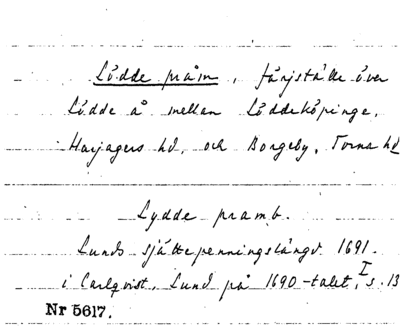 Lödde pråm, färjställe över
Lödde å mellan Löddeköpinge,
Harjagers hd, och Borgeby, Torna hd
Lydde pramb.
Lunds sjättepenningslängd 1691.
i Carlqvist, Lund på 1690-talet, I s. 13
Nr 5617.